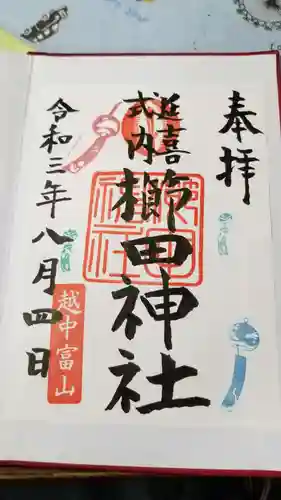 奉拝
延喜
式内
櫛田神社
令和三年八月四日
越中富山